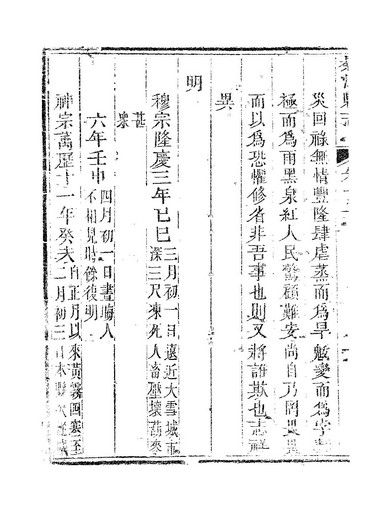 災回祿無情豐隆肆虐蒸而為旱魃變而為孛
極而為雨黑泉紅人民驚顧難安尚自乃罔畏
而以為恐懼修省非吾事也則又將誰欺也志祥
異
明
穆宗隆慶三年己巳三月初一日遠近大雪城市深三尺凍死人畜壓壞蕎麥
甚衆
六年壬申四月初一日晝晦人不相見時餘復明
神宗萬曆十一年癸未自正月以來黃霧四塞至二月初三日